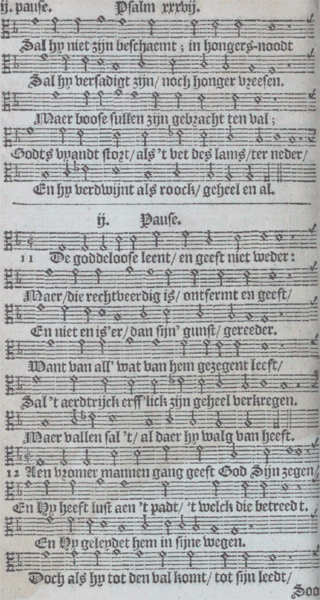 ij. pause. Psalm xxxvij.
Sal hy niet zijn beschaemt; in hongers-noodt
Sal hy versadigt zijn/ noch honger vreesen.
Maer boose sullen zijn gebracht ten val;
Godts vyandt stort/ als 't vet des lams/ ter neder/
En hy verdwijnt als roock/ geheel en al.
ij. Pause.
11 De goddeloose leent/ en geeft niet weder:
Maer/ die rechtveerdig is/ ontfermt en geeft/
En niet en is'er/ dan sijn' gunst/ gereeder.
Want van all' wat van hem gezegent leeft/
Sal 't aerdtrijck erff'lick zijn geheel verkregen.
Maer vallen sal 't/ al daer hy walg van heeft.
12 Aen vromer mannen gang geeft God Sijn zegen/
En Hy heeft lust aen 't padt/ 't welck die betreedt.
En Hy geleydet hem in sijne wegen.
Doch als hy tot den val komt/ tot sijn leedt/
Soo